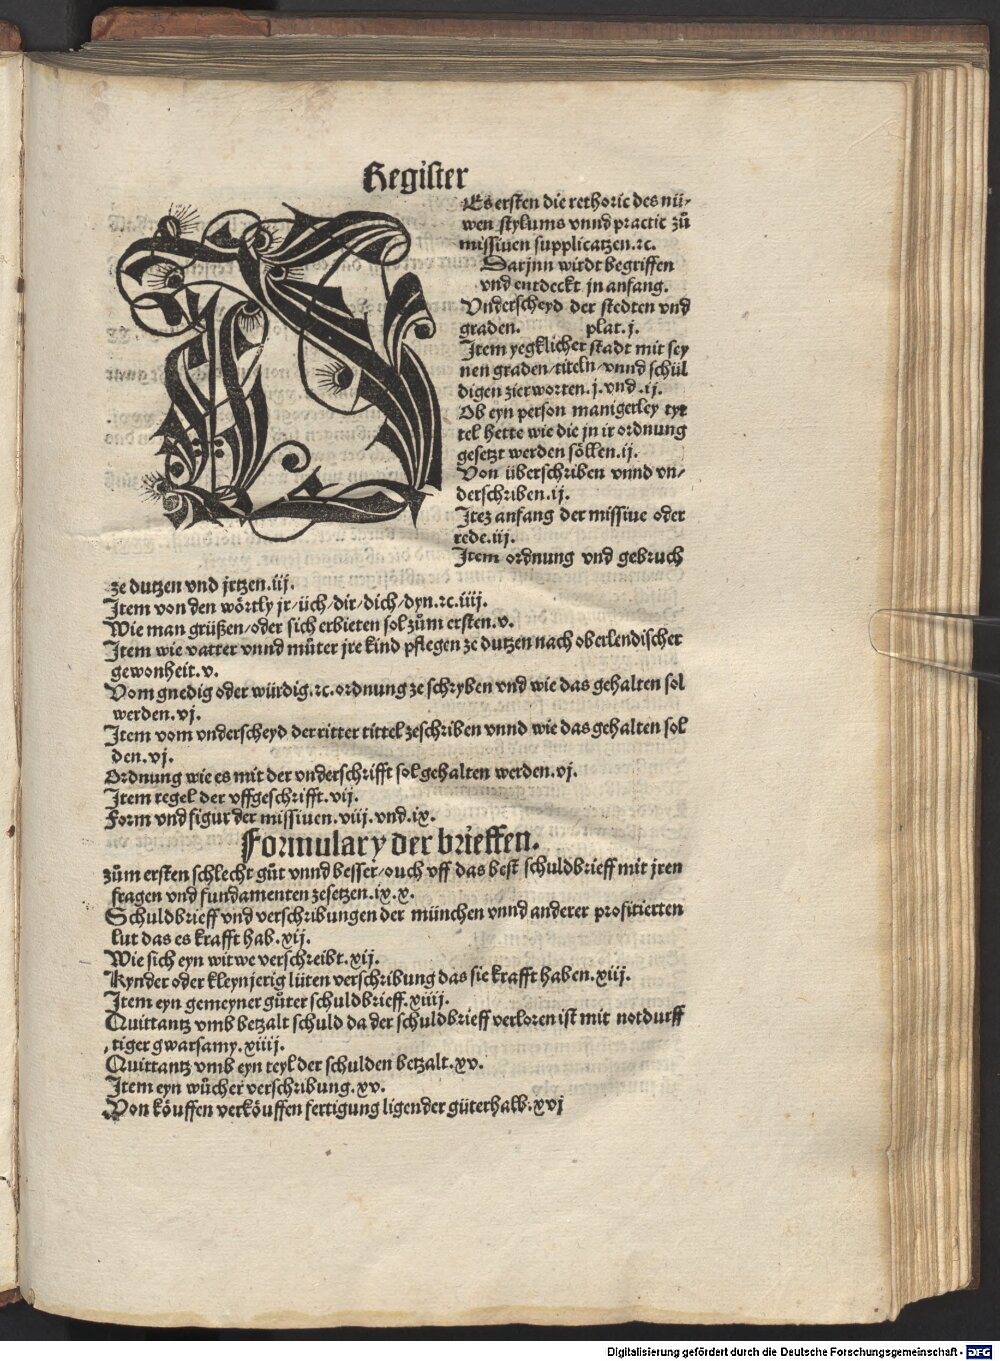 Register
Es ersten die rethoric des nü/
wen stylums vnnd practic zů
missiuen supplicatzen.ꝛc.
Darjnn wirdt begriffen
vnd entdeckt jn anfang.
Vnderscheyd der stedten vnd
graden. plat.j.
Item yegklicher stadt mit sey
nen graden/titeln/vnnd schül
digen zierworten.j.vnd.ij.
Ob eyn person manigerley tyt
tel hette wie die jn ir ordnung
gesetzt werden söllen.ij.
Von überschriben vnnd vn/
derschriben.ij.
Itez anfang der missiue oder
rede.iij.
Item ordnung vnd gebruch
ze dutzen vnd jrtzen.iij.
Item von den wörtly jr/üch/dir/dich/dyn.ꝛc.iiij.
Wie man grüßen/oder sich erbieten sol zům ersten.v.
Item wie vatter vnnd můter jre kind pflegen ze dutzen nach oberlendischer
gewonheit.v.
Vom gnedig oder würdig.ꝛc.ordnung ze schryben vnd wie das gehalten sol
werden.vj.
Item vom vnderscheyd der ritter tittel zeschriben vnnd wie das gehalten sol
den.vj.
Ordnung wie es mit der vnderschrifft sol gehalten werden.vj.
Item regel der vffgeschrifft.vij.
Form vnd figur der missiuen.viij.vnd.ix.
Formulary der brieffen.
zům ersten schlecht gůt vnnd besser/ouch vff das best schuldbrieff mit jren
fragen vnd fundamenten zesetzen.ix.x.
Schuldbrieff vnd verschribungen der münchen vnnd anderer profitierten
lut das es krafft hab.xij.
Wie sich eyn witwe verschreibt.xij.
Kynder oder kleynjerig lüten verschribung das sie krafft haben.xiij.
Item eyn gemeyner gůter schuldbrieff.xiiij.
Quittantz vmb betzalt schuld da der schuldbrieff verloren ist mit notdurff
tiger gwarsamy.xiiij.
Quittantz vmb eyn teyl der schulden betzalt.xv.
Item eyn wůcher verschribung.xv.
Von köuffen verköuffen fertigung ligender güter halb.xvj
Digitalisierung gefördert durch die Deutsche Forschungsgemeinschaft - DFG